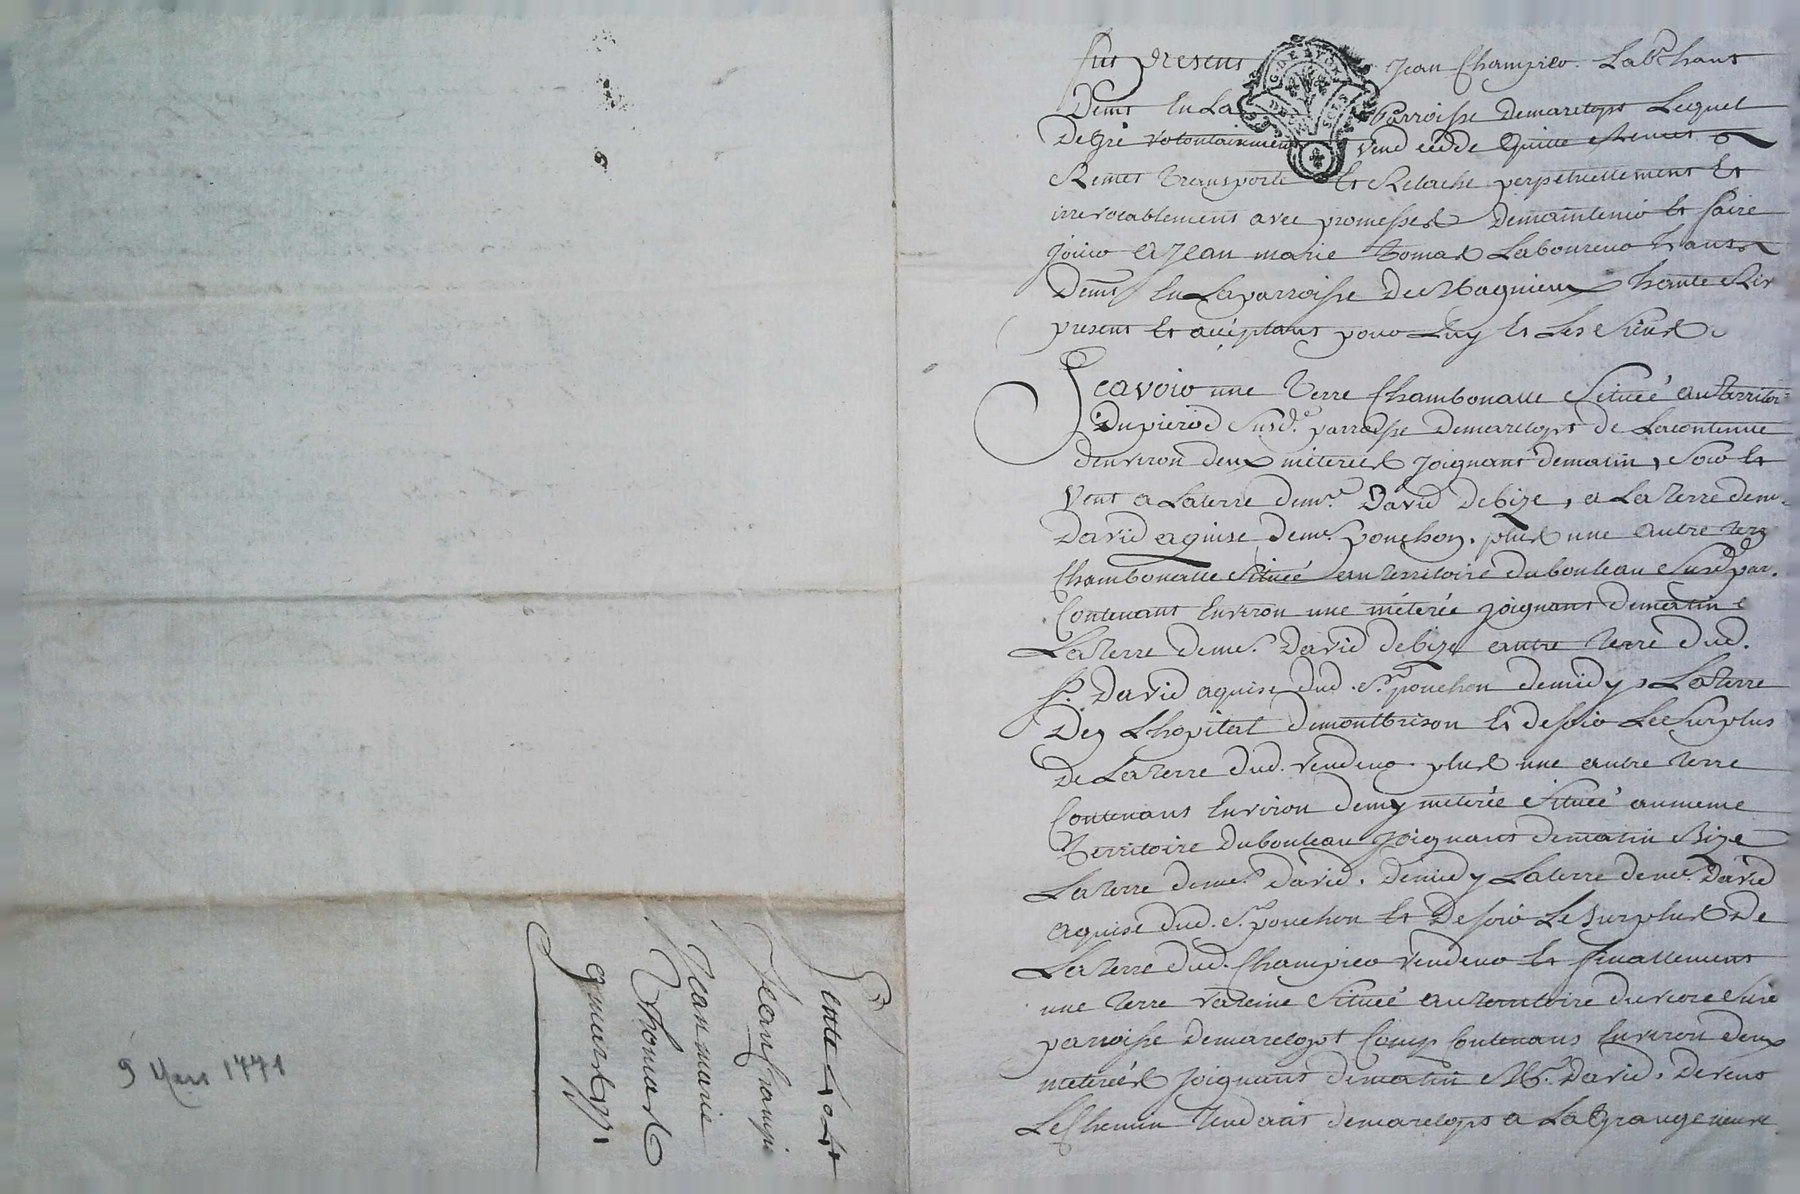 fut present Jean Champier Lab.r hant
Demt en La Parroisse de marclopt Lequel
de gré volontairement vend cède quitte
Remet transporte et Relache perpetuellement et
irrevocablement avec promesses de maintenir et faire
jouir a Jean marie tomas Laboureur
demt en La parroisse De Magnieux haute Rive
present et acceptant pour Luy et Les Siens
Scavoir une terre Chambonalle Située au territoire
Du Susd. parroisse de marclopt de La contenue
denviron deux meterées joignant de matin, Soir et
vent a La terre de mr. David de bize, a La terre de mr
David aquise de mr ponchon. plus une autre terre
Chambonalle Située au territoire du bouleau Susd. par.
Contenant Environ une méterée joignant de matin
La terre de mr. David de bize autre terre dud.
Sr. David aquise dud. Sr. ponchon de midy La terre
De Lhopital de montbrison et de Soir Le Surplus
de La terre dud. vendeur. plus une autre terre
Contenant Environ demy meterée Située au meme
Territoire Du bouleau joignant de matin Bize
La terre de mr. David, de midy La terre de mr. David
aquise dud. Sr. ponchon et De Soir Le Surplus De
La terre dud. Champier vendeur et finallement
une terre vareine Située au territoire
parroisse De marclopt Contenant Environ deux
meterées joignant de matin Mr. David, De vent
Le Chemin tendant de marclopt a La Grange neuve
Vente
Jean Champier
Jean marie
Thomas
9 Mars 1771